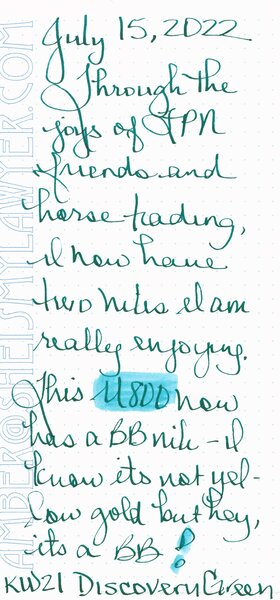 July 15, 2022
Through the
joys of FPN
friends and
horse trading,
I now have
two nibs I am
really enjoying.
This M800 now
has a BB nib - I
know its not yel-
low gold but hey,
its a BB!
KW21 Discovery Green
AMBER@SHEISMYLAWYER.COM